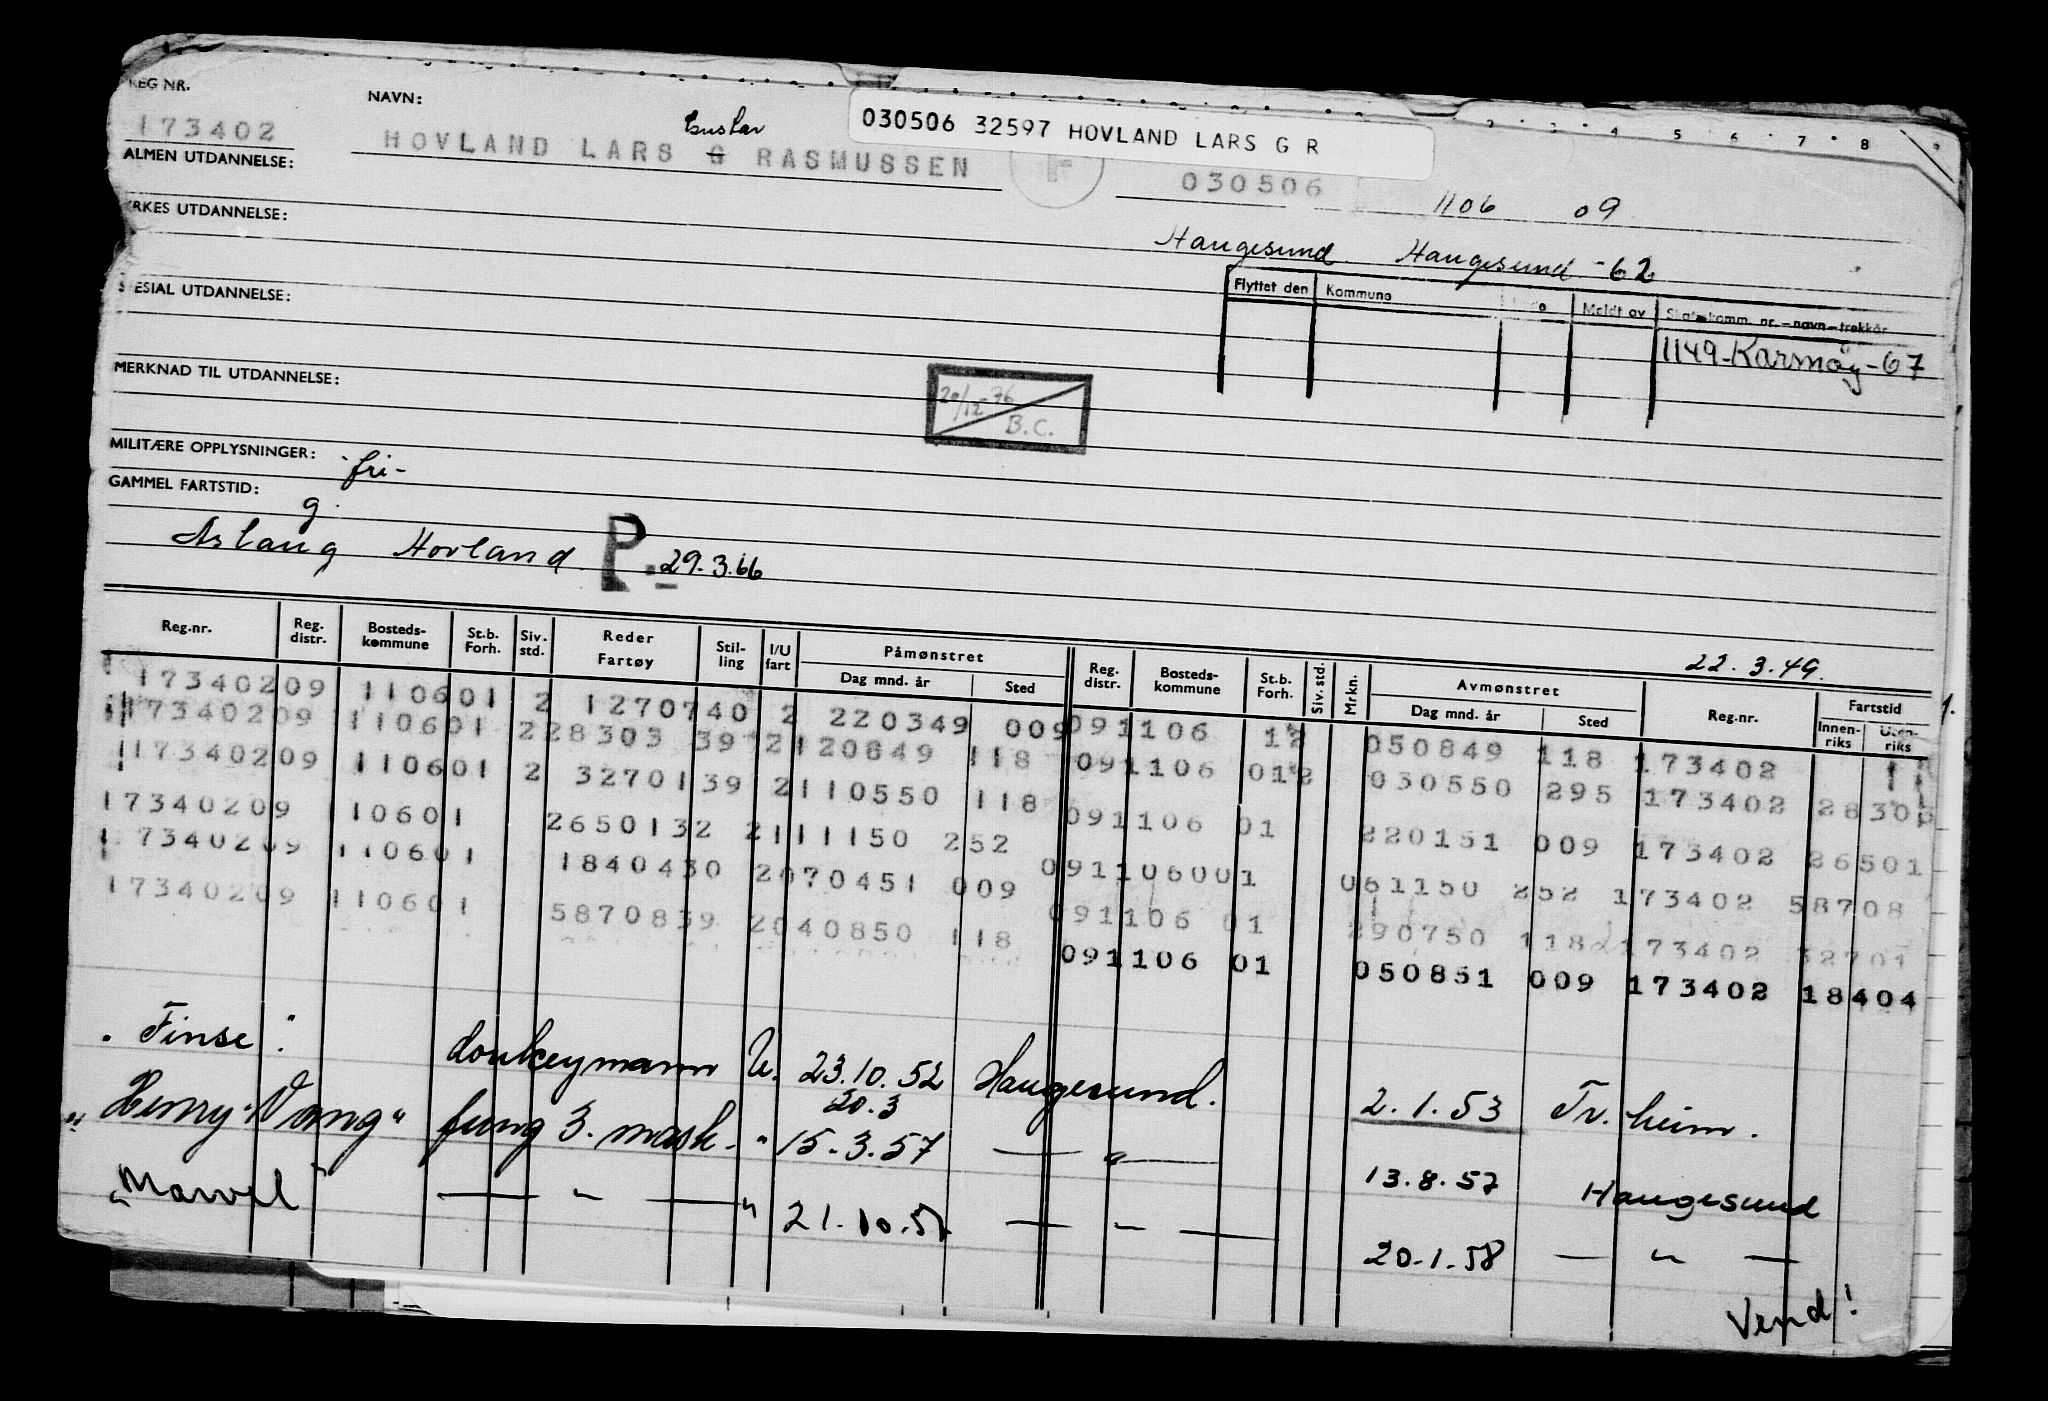 REG NR. NAVN: 030506 32597 HOVLAND LARS G R
173402 HOVLAND LARS G RASMUSSEN F 030506 1106 09
ALMEN UTDANNELSE:
YRKES UTDANNELSE: Haugesund. Haugesund -62
SPESIAL UTDANNELSE: Flyttet den Kommune Meldt av Skattekomm. nr.-navn-trekkår
1149-Karmöy-67
MERKNAD TIL UTDANNELSE: 20/12-76 B.C.
MILITÆRE OPPLYSNINGER: fri-
GAMMEL FARTSTID: g.
Aslaug Hovland P. 29.3.66
22.3.49.
Reg.nr. Reg. distr. Bosteds-kommune St.b. Forh. Siv. std. Reder Fartøy Stil-ling I/U fart Påmønstret Dag mnd. år Sted Reg. distr. Bosteds-kommune St.b. Forh. Siv. std. Mrkn. Avmønstret Dag mnd. år Sted Reg.nr. Fartstid Innen-riks Uten-riks
17340209 110601 2 1270740 2 220349 009 091106 12 050849 118 173402
17340209 110601 228303 39 2120849 118 091106 012 030550 295 173402 28303
17340209 110601 2 3270139 2110550 118 091106 01 220151 009 173402 26501
17340209 110601 2650132 2111150 252 091106001 061150 252 173402 58708
17340209 110601 1840430 2070451 009 091106 01 290750 118 173402 32701
17340209 110601 5870839 2040850 118 091106 01 050851 009 173402 18404
"Finse". donkeymann U. 23.10.52 Haugesund. 2.1.53 Tr.heim.
20.3
"Henry Wang" fung 3. mask. " 15.3.57 — " — 13.8.57 Haugesund
"Marvel" — " — " 21.10.57 — " — 20.1.58 — " —
Vend!